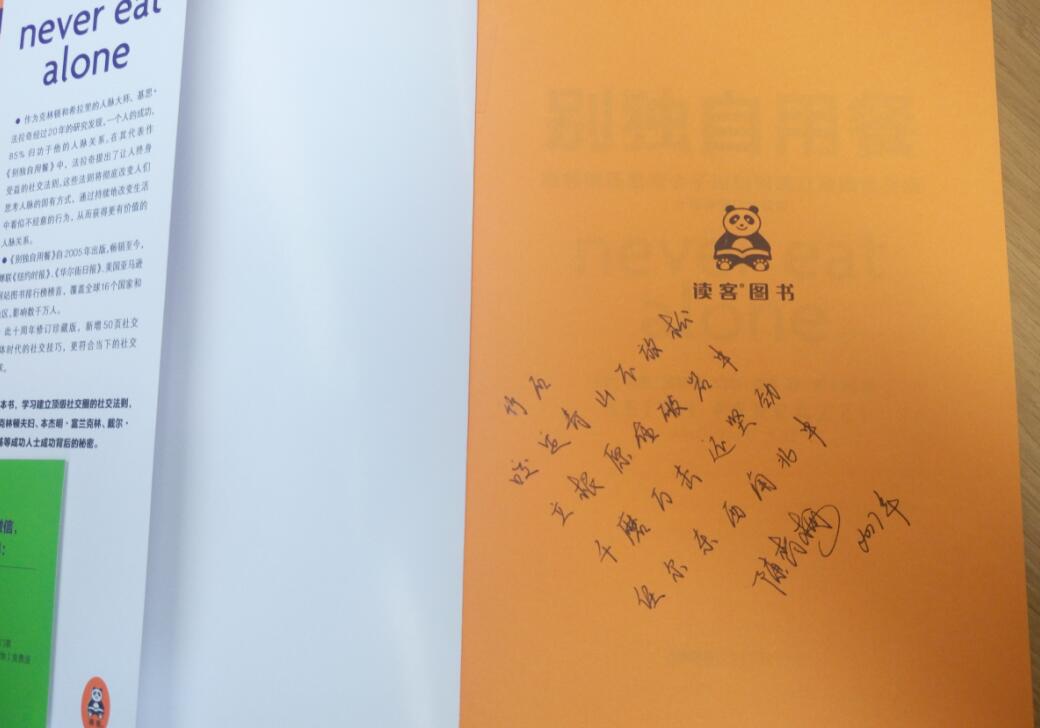 never eat
alone
● 作为克林顿和希拉里的人脉大师，基思·
法拉奇经过20年的研究发现，一个人的成功，
85%归功于他的人脉关系。在其代表作
《别独自用餐》中，法拉奇提出了让人终身
受益的社交法则，这些法则将彻底改变人们
思考人脉的固有方式，通过持续地改变生活
中看似不经意的行为，从而获得更有价值的
人脉关系。
● 《别独自用餐》自2005年出版，畅销至今，
蝉联《纽约时报》、《华尔街日报》、美国亚马逊
网站图书排行榜榜首，覆盖全球16个国家和
地区，影响数千万人。
此十周年修订珍藏版，新增50页社交
体时代的社交技巧，更符合当下的社交
本书，学习建立顶级社交圈的社交法则，
克林顿夫妇、本杰明·富兰克林、戴尔·
基等成功人士成功背后的秘密。
微信，
门票
读客
别独自用餐
never eat
alone
读客®图书
竹石
咬定青山不放松
立根原在破岩中
千磨万击还坚劲
任尔东西南北中
陈
2017年